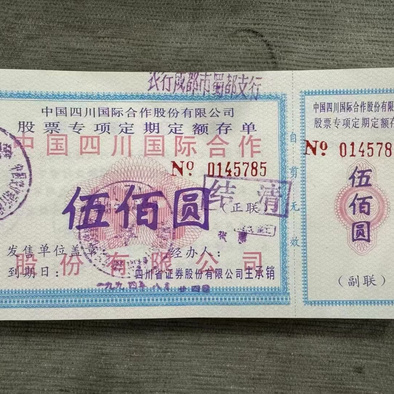 农行成都市蜀都支行
中国四川国际合作股份有限公司
股票专项定期定额存单
中国四川国际合作
№ 0145785
伍佰圆
(正联)
结清
发售单位盖章
经办人:
到期日:
四川省证券股份有限公司主承销
股份有限公司
自剪无效
中国四川国际合作股份有限公
股票专项定期定额存
№ 014578
伍佰圆
(副联)